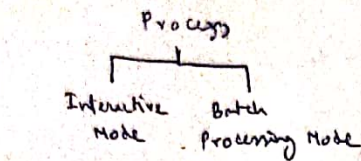 Process
Interactive Batch
Mode Processing Mode